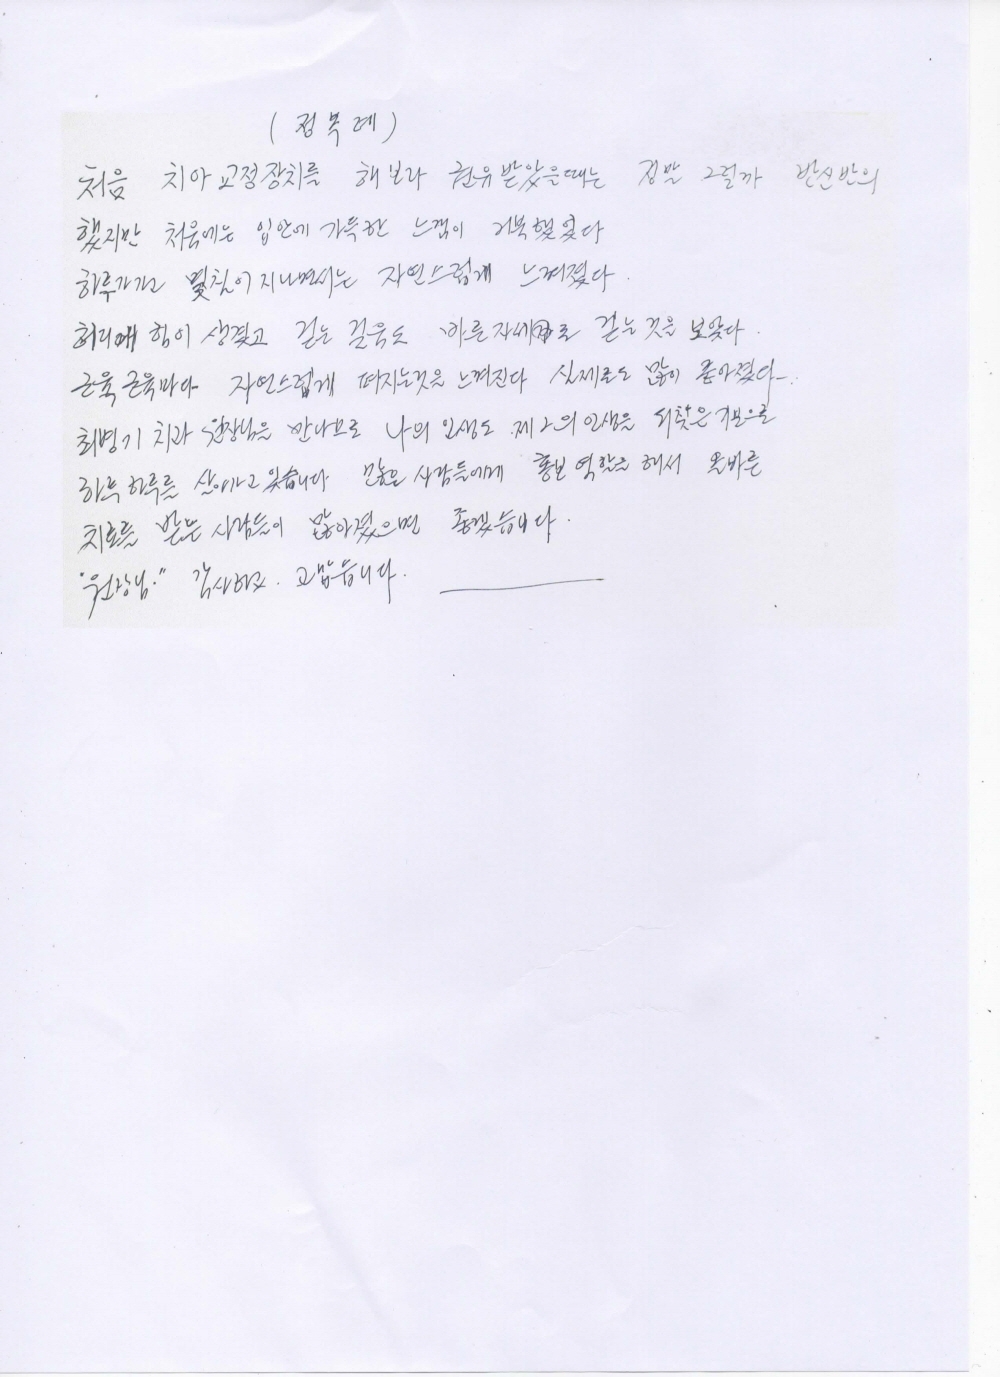 (정복례)
처음 치아교정장치를 해보라 권유받았을때는 정말 그럴까 반신반의
했지만 처음에는 입안에 가득한 느낌이 거북했었다
하루가가고 몇칠이지나면서는 자연스럽게 느껴졌다.
허리에 힘이 생겼고 걷는 걸음도 바른자세로 걷는것을 보았다.
근육근육마다 자연스럽게 펴지는것을 느껴진다 실제로도 많이 좋아졌다.
최병기 치과 원장님을 만나므로 나의 인생도 제2의인생을 되찾은기분으로
하루하루를 살아가고있습니다 많은 사람들에게 홍보역할을 해서 올바른
치료를 받는 사람들이 많아졌으면 좋겠습니다.
"원장님." 감사하고. 고맙습니다.